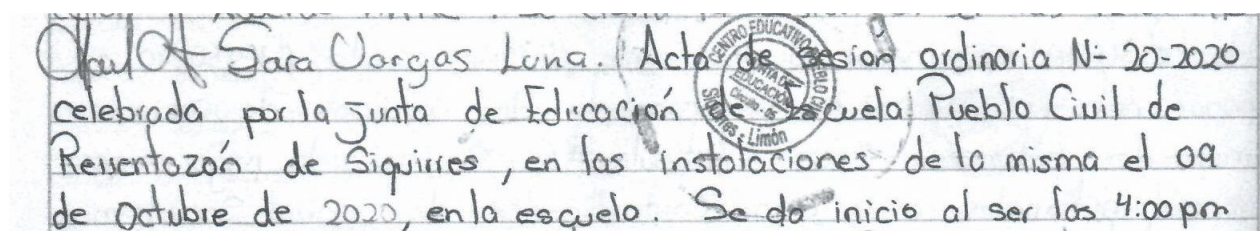 Sara Vargas Luna. Acta de sesion ordinaria N- 20-2020
celebrada por la Junta de Educación de Escuela Pueblo Civil de
de Siquirres, en las instalaciones de la misma el 09
de Octubre de 2020, en la escuela. Se da inicio al ser las 4:00 pm
CENTRO EDUCATIVO PUEBLO CIVIL
JUNTA DE
EDUCACIÓN
Circuito - 05
Siquirres - Limón